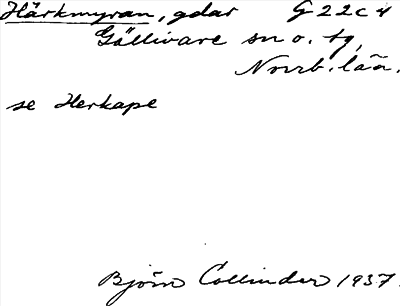 Härkmyran, gdar G 22 C d
Gällivare sn o. tg,
Norrb. län.
se Herkape
Björn Collinder 1937.